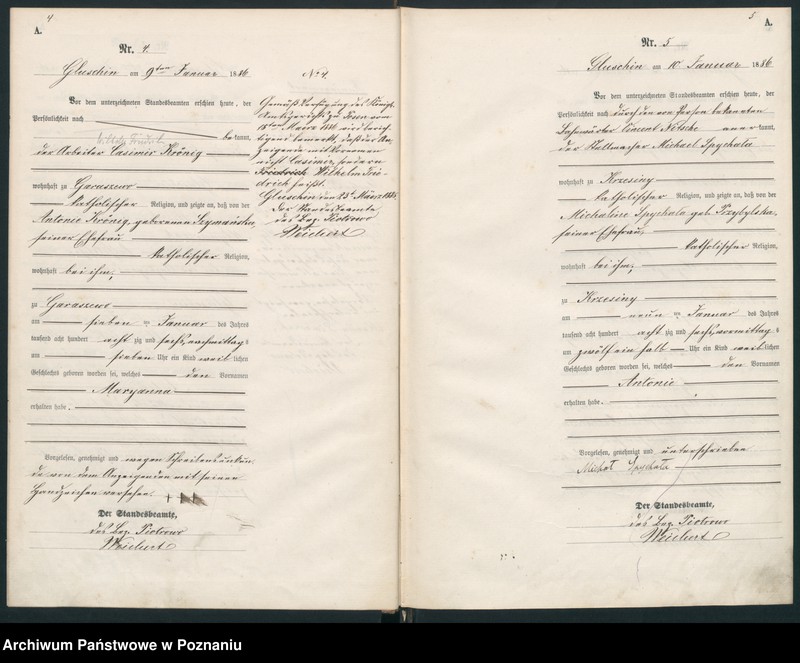 4
A.
Nr. 4.
Gluschin am 9ten Januar 1886
Vor dem unterzeichneten Standesbeamten erschien heute, der
Persönlichkeit nach
Wilhelm Friedrich
bekannt,
der Arbeiter Casimir Krönig
wohnhaft zu Garaszewo
katholischer Religion, und zeigte an, daß von der
Antonie Krönig, geborenen Szymańska,
seiner Ehefrau
katholischer Religion,
wohnhaft bei ihm,
zu Garaszewo
am sieben ten Januar des Jahres
tausend acht hundert acht zig und sechs, nachmittags
um sieben Uhr ein Kind weiblichen
Geschlechts geboren worden sei, welches den Vornamen
Maryanna
erhalten habe.
Vorgelesen, genehmigt und wegen Schreibensunkun-
de von dem Anzeigenden mit seinem
Handzeichen versehen. +++
Der Standesbeamte,
des Bez. Piotrowo
Weichert
No 4.
Gemäß Verfügung des Königl.
Amtsgerichts zu Posen vom
März 1886 wird berich-
tigend bemerkt, daß der An-
zeigende mit Vornamen
nicht Casimir, sondern
Friedrich Wilhelm Frie-
drich heißt.
Gluschin den 25t März 1886.
Der Standesbeamte
des Bez. Piotrowo
Weichert
5
A.
Nr. 5
Gluschin am 10 Januar 1886
Vor dem unterzeichneten Standesbeamten erschien heute, der
Persönlichkeit nach durch den von Person bekannten
Conrad Nitsche anerkannt,
der Stellmacher Michael Spychala
wohnhaft zu Krzesiny
katholischer Religion, und zeigte an, daß von der
Michaline Spychala geb. Przybylska,
seiner Ehefrau,
katholischer Religion,
wohnhaft bei ihm,
zu Krzesiny
am neun ten Januar des Jahres
tausend acht hundert acht zig und sechs, vormittags
um zwölf ein halb Uhr ein Kind weiblichen
Geschlechts geboren worden sei, welches den Vornamen
Antonie
erhalten habe.
Vorgelesen, genehmigt und unterschrieben
Michał Spychała
Der Standesbeamte,
des Bez. Piotrowo
Weichert
Archiwum Państwowe w Poznaniu